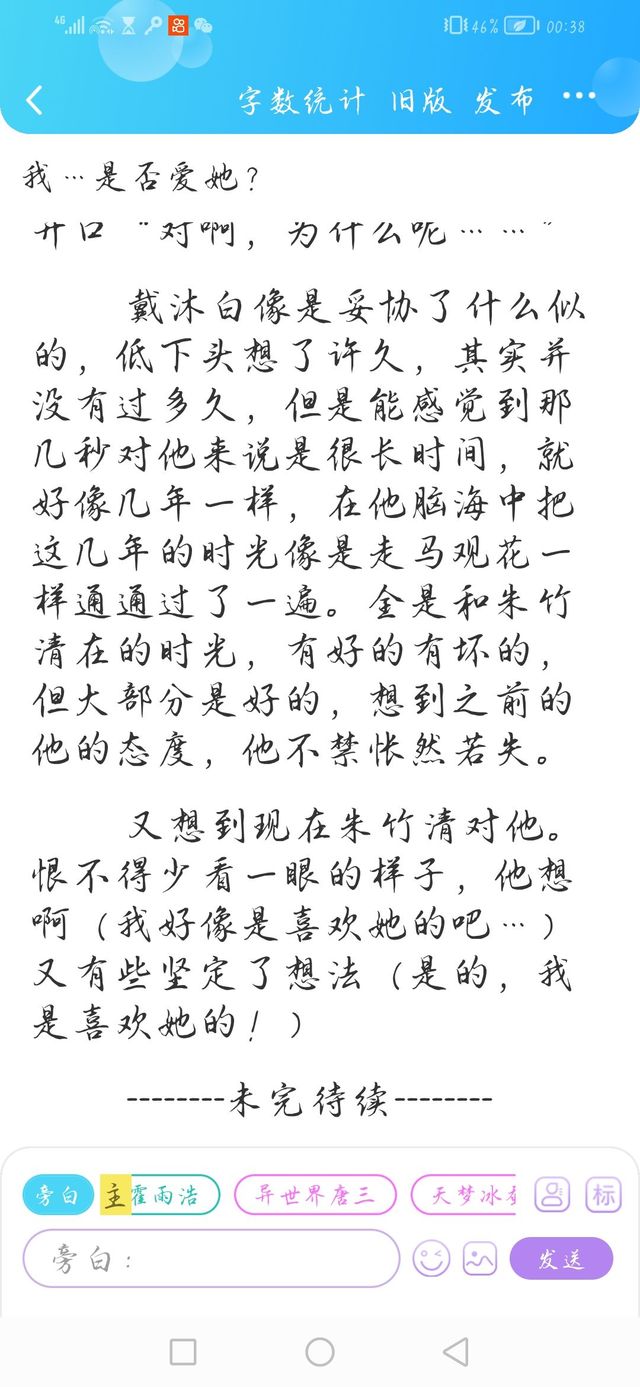 4G
46%
00:38
字数统计 旧版 发布 ···
我…是否爱她？
开口“对啊，为什么呢……”
戴沐白像是妥协了什么似
的，低下头想了许久，其实并
没有过多久，但是能感觉到那
几秒对他来说是很长时间，就
好像几年一样，在他脑海中把
这几年的时光像是走马观花一
样通通过了一遍。全是和朱竹
清在的时光，有好的有坏的，
但大部分是好的，想到之前的
他的态度，他不禁怅然若失。
又想到现在朱竹清对他。
恨不得少看一眼的样子，他想
啊（我好像是喜欢她的吧…）
又有些坚定了想法（是的，我
是喜欢她的！）
--------未完待续--------
旁白 主 霍雨浩 异世界唐三 天梦冰 标
旁白： 发送